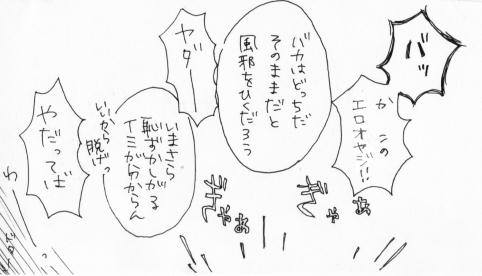 バッ
かこの
エロオヤジ!!
バカはどっちだ
そのままだと
風邪をひくだろう
ヤダー
いまさら
恥ずかしがる
イミが分からん
いいから脱げっ
やだってば
ぎゃあ
ぎゃあ
わ